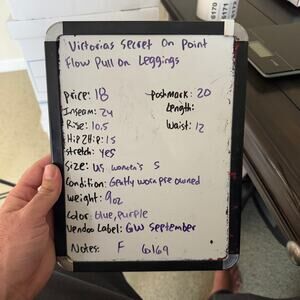 Victorias Secret On Point
Flow Pull On Leggings
price: 18
poshmark: 20
Inseam: 24
Length:
Rise: 10.5
Waist: 12
Hip 2 Hip: 15
stretch: yes
Size: US women's S
Condition: Gently worn pre owned
weight: 9oz
Color: blue, purple
Vendoo Label: GW September
Notes: F 6169
6170
6171